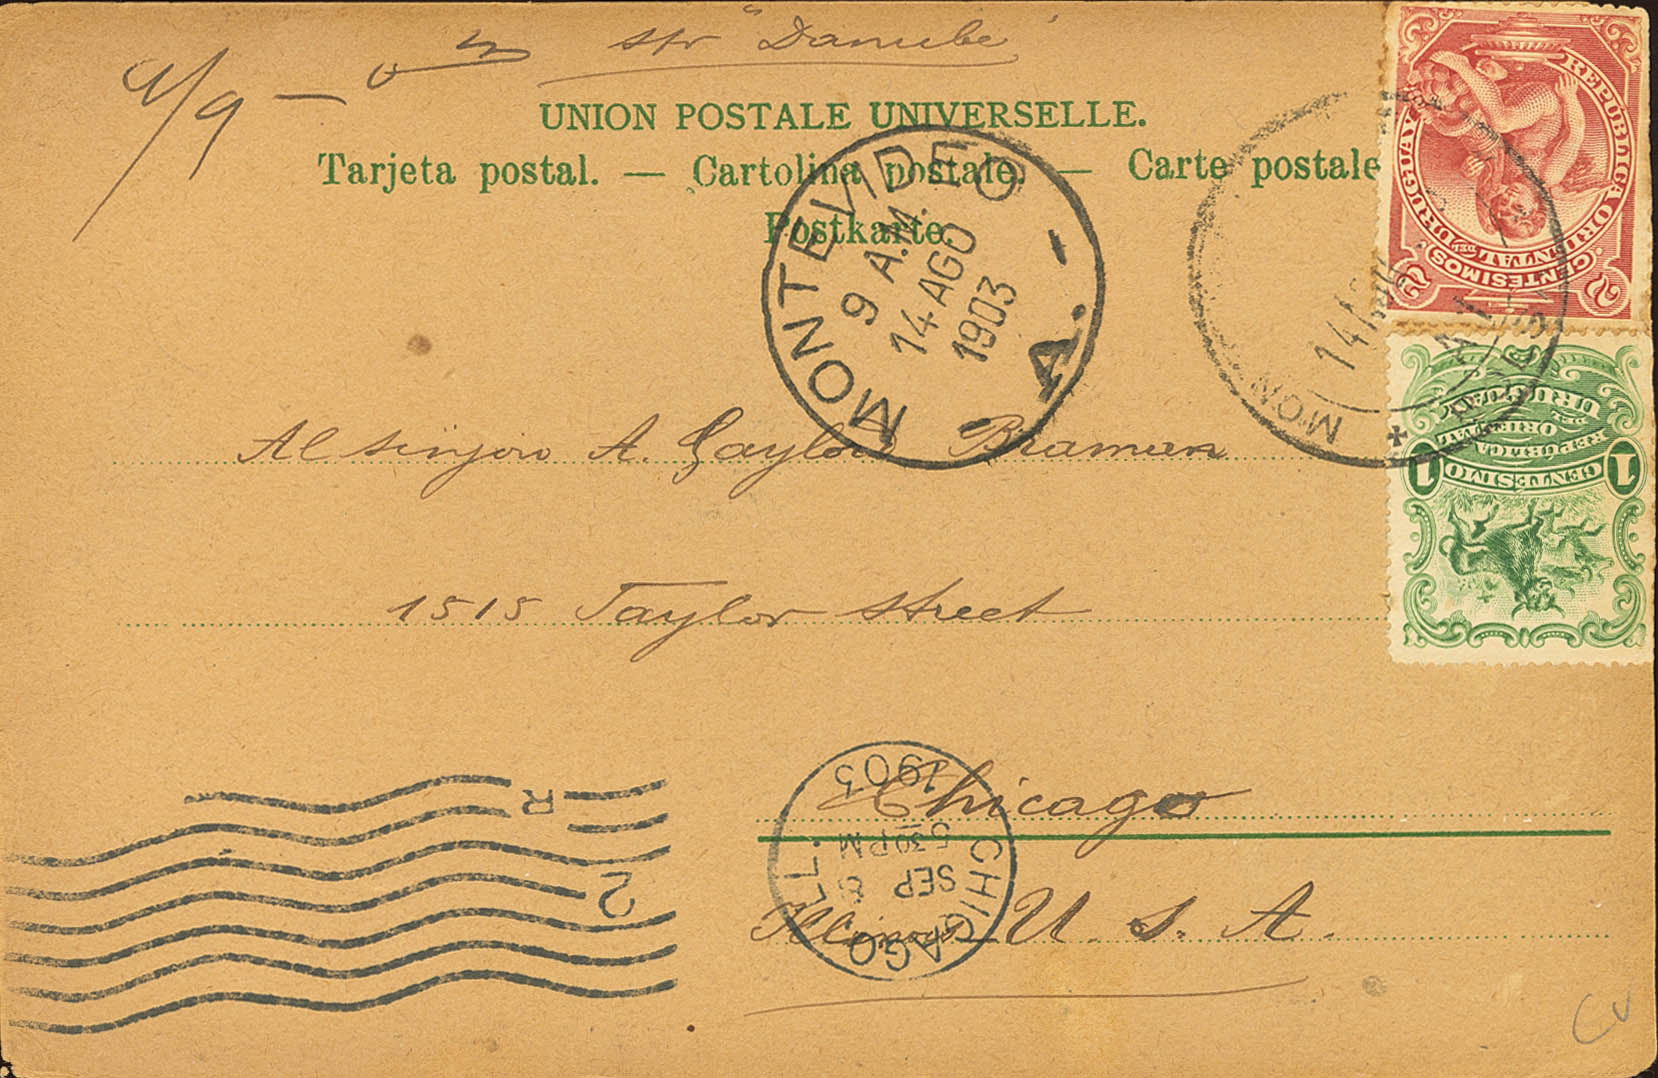 str "Danube"
UNION POSTALE UNIVERSELLE.
Tarjeta postal. — Cartolina postale. — Carte postale
Postkarte
MONTEVIDEO
9 A.M.
14 AGO
1903
A.
MON
14 A
REPUBLICA ORIENTAL DEL URUGUAY
2 CENTESIMOS 2
1 CENTESIMO 1
REPUBLICA
ORIENTAL
DEL
URUGUAY
Al sinjoro A. Gaylord Braman
1515 Taylor Street
Chicago
Illinois U. S. A.
CHICAGO ILL.
SEP 8
5 30 PM
1903
R
2